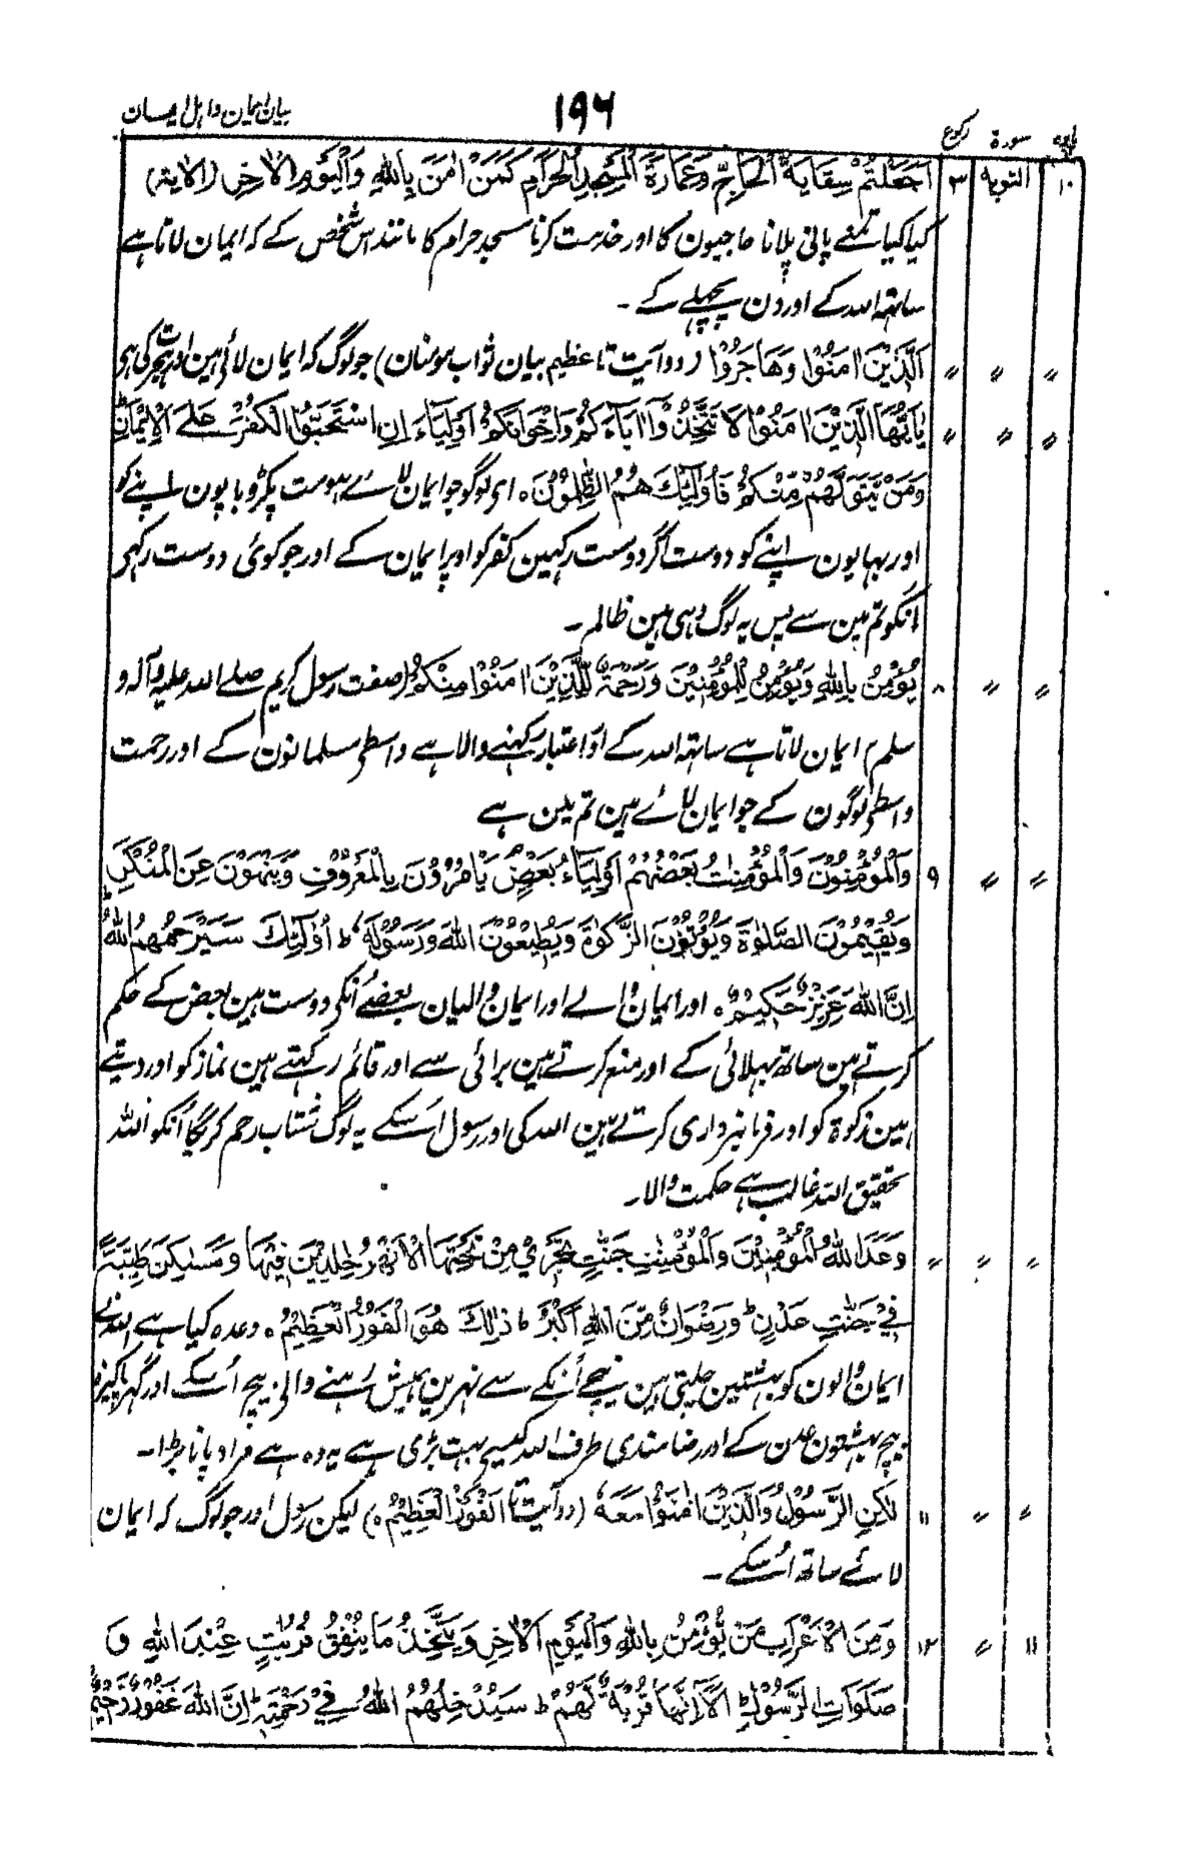 بیان ایمان و اہل ایمان
۱۹۶
پارہ سورۃ رکوع
۱۰ التوبہ ۳ اَجَعَلْتُمْ سِقَایَۃَ الْحَآجِّ وَعِمَارَۃَ الْمَسْجِدِ الْحَرَامِ کَمَنْ اٰمَنَ بِاللّٰہِ وَالْیَوْمِ الْاٰخِرِ (الاٰیۃ)
کیا کیا تمنے پانی پلانا حاجیون کا اور خدمت کرنا مسجد حرام کا مانند اس شخص کے کہ ایمان لاتا ہے
ساتھ اللہ کے اور دن پچھلے کے ۔
〃 〃 〃 اَلَّذِیْنَ اٰمَنُوْا وَھَاجَرُوْا (دو آیت تا عظیم بیان ثواب مومنان) جو لوگ کہ ایمان لائی ہین اور ہجرت کی ہی
〃 〃 〃 یٰاَیُّھَا الَّذِیْنَ اٰمَنُوْا لَا تَتَّخِذُوْآ اٰبَآءَکُمْ وَاِخْوَانَکُمْ اَوْلِیَآءَ اِنِ اسْتَحَبُّوا الْکُفْرَ عَلَی الْاِیْمَانِ ط
وَمَنْ یَّتَوَلَّھُمْ مِّنْکُمْ فَاُولٰٓئِکَ ھُمُ الظّٰلِمُوْنَ ہ ای لوگو جو ایمان لائے ہو مت پکڑو باپون اپنے کو
اور بہایون اپنے کو دوست اگر دوست رکہین کفر کو اوپر ایمان کے اور جو کوئی دوست رکہی
انکو تم مین سے پس یہ لوگ وہی ہین ظالم ۔
〃 〃 ۸ یُؤْمِنُ بِاللّٰہِ وَیُؤْمِنُ لِلْمُؤْمِنِیْنَ وَرَحْمَۃٌ لِّلَّذِیْنَ اٰمَنُوْا مِنْکُمْ (صفت رسول کریم صلے اللہ علیہ وآلہ و
سلم) ایمان لاتا ہے ساتہ اللہ کے اور اعتبار رکہنے والا ہے واسطی مسلمانون کے اور رحمت
واسطی لوگون کے جو ایمان لائے ہین تم مین ہے
〃 〃 ۹ وَالْمُؤْمِنُوْنَ وَالْمُؤْمِنٰتُ بَعْضُھُمْ اَوْلِیَآءُ بَعْضٍ یَاْمُرُوْنَ بِالْمَعْرُوْفِ وَیَنْھَوْنَ عَنِ الْمُنْکَرِ
وَیُقِیْمُوْنَ الصَّلٰوۃَ وَیُؤْتُوْنَ الزَّکٰوۃَ وَیُطِیْعُوْنَ اللّٰہَ وَرَسُوْلَہٗ ط اُولٰٓئِکَ سَیَرْحَمُھُمُ اللّٰہُ
اِنَّ اللّٰہَ عَزِیْزٌ حَکِیْمٌ ہ اور ایمان والے اور ایمان والیان بعضے اُنکی دوست ہین بعض کے حکم
کرتے ہین ساتہ بہلائی کے اور منع کرتے ہین برائی سے اور قائم رکہتے ہین نماز کو اور دیتے
ہین زکوۃ کو اور فرمانبرداری کرتے ہین اللہ کی اور رسول اُسکے یہ لوگ شتاب رحم کریگا اُنکو اللہ
تحقیق اللہ غالب ہے حکمت والا ۔
〃 〃 〃 وَعَدَ اللّٰہُ الْمُؤْمِنِیْنَ وَالْمُؤْمِنٰتِ جَنّٰتٍ تَجْرِیْ مِنْ تَحْتِھَا الْاَنْھٰرُ خٰلِدِیْنَ فِیْھَا وَمَسٰکِنَ طَیِّبَۃً
فِیْ جَنّٰتِ عَدْنٍ ط وَرِضْوَانٌ مِّنَ اللّٰہِ اَکْبَرُ ط ذٰلِکَ ھُوَ الْفَوْزُ الْعَظِیْمُ ہ وعدہ کیا ہے اللہ نے
ایمان والون کو بہشتین چلتی ہین نیچے اُنکے سے نہرین ہمیش رہنے والی بیچ اُسکے اور گہر پاکیزہ
بیچ بہشتون عدن کے اور رضامندی طرف اللہ کیسے بہت بڑی ہے یہ وہ ہے مراد پانا بڑا ۔
〃 〃 ۱۱ لٰکِنِ الرَّسُوْلُ وَالَّذِیْنَ اٰمَنُوْا مَعَہٗ (دو آیت تا الْفَوْزُ الْعَظِیْمُ ہ) لیکن رسول اور جو لوگ کہ ایمان
لائے ساتہ اُسکے ۔
۱۱ 〃 ۱۲ وَمِنَ الْاَعْرَابِ مَنْ یُّؤْمِنُ بِاللّٰہِ وَالْیَوْمِ الْاٰخِرِ وَیَتَّخِذُ مَا یُنْفِقُ قُرُبٰتٍ عِنْدَ اللّٰہِ وَ
صَلَوَاتِ الرَّسُوْلِ ط اَلَآ اِنَّھَا قُرْبَۃٌ لَّھُمْ ط سَیُدْخِلُھُمُ اللّٰہُ فِیْ رَحْمَتِہٖ ط اِنَّ اللّٰہَ غَفُوْرٌ رَّحِیْمٌ